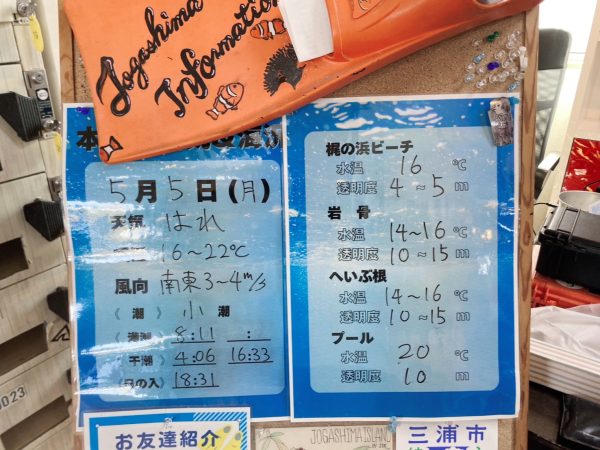 Jogashima
Information
本
5月5日(月)
天気 はれ
気温 16~22℃
風向 南東3~4m/s
《 潮 》 小 潮
《 満潮 》 8:11 :
《 干潮 》 4:06 16:33
《日の入》 18:31
梶の浜ビーチ
水温 16 ℃
透明度 4~5 m
岩骨
水温 14~16 ℃
透明度 10~15 m
へいぶ根
水温 14~16 ℃
透明度 10~15 m
プール
水温 20 ℃
透明度 10 m
お友達紹介
JOGASHIMA ISLAND
三浦市
0023